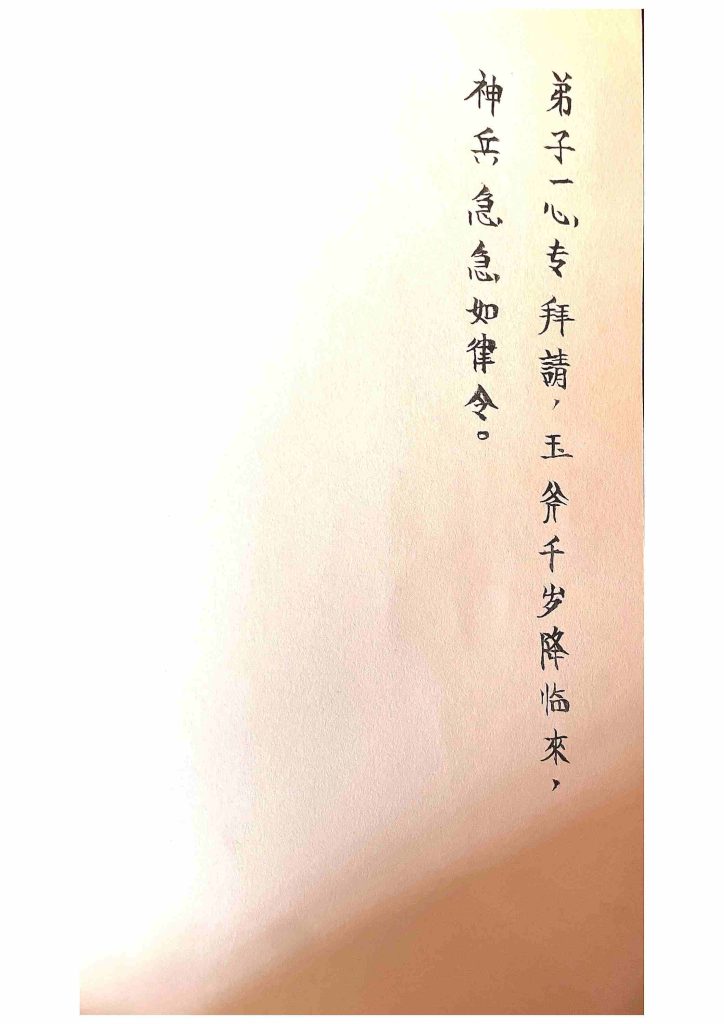 弟子一心专拜請，玉斧千岁降临來，
神兵急急如律令。